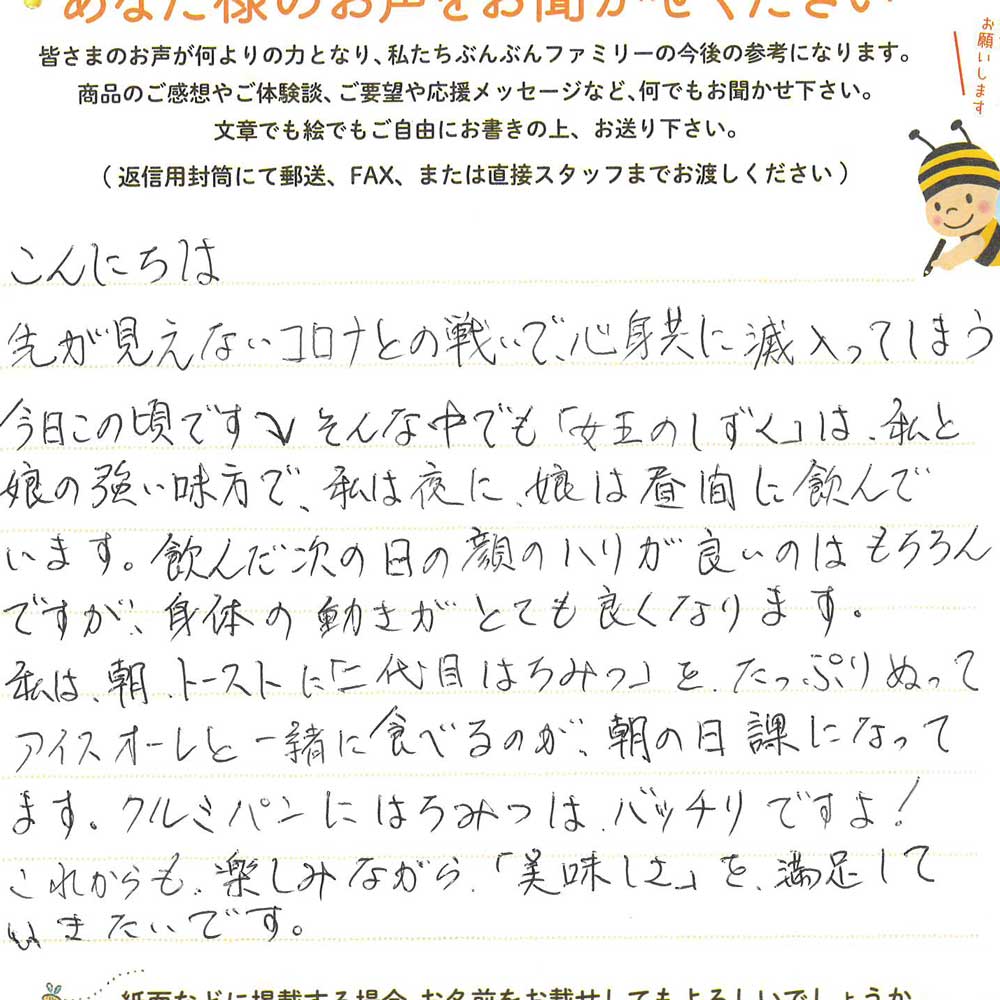 あなた様のお声をお聞かせください
お願いします
皆さまのお声が何よりの力となり、私たちぶんぶんファミリーの今後の参考になります。
商品のご感想やご体験談、ご要望や応援メッセージなど、何でもお聞かせ下さい。
文章でも絵でもご自由にお書きの上、お送り下さい。
（返信用封筒にて郵送、FAX、または直接スタッフまでお渡しください）
こんにちは
先が見えないコロナとの戦いで、心身共に滅入ってしまう
今日この頃です⤵そんな中でも「女王のしずく」は、私と
娘の強い味方で、私は夜に、娘は昼間に飲んで
います。飲んだ次の日の顔のハリが良いのはもちろん
ですが、身体の動きがとても良くなります。
私は、朝、トーストに「二代目はちみつ」を、たっぷりぬって
アイスオーレと一緒に食べるのが、朝の日課になって
ます。クルミパンにはちみつは、バッチリですよ!
これからも、楽しみながら、「美味しさ」を、満足して
いきたいです。
紙面などに掲載する場合、お名前をお載せしてもよろしいでしょうか